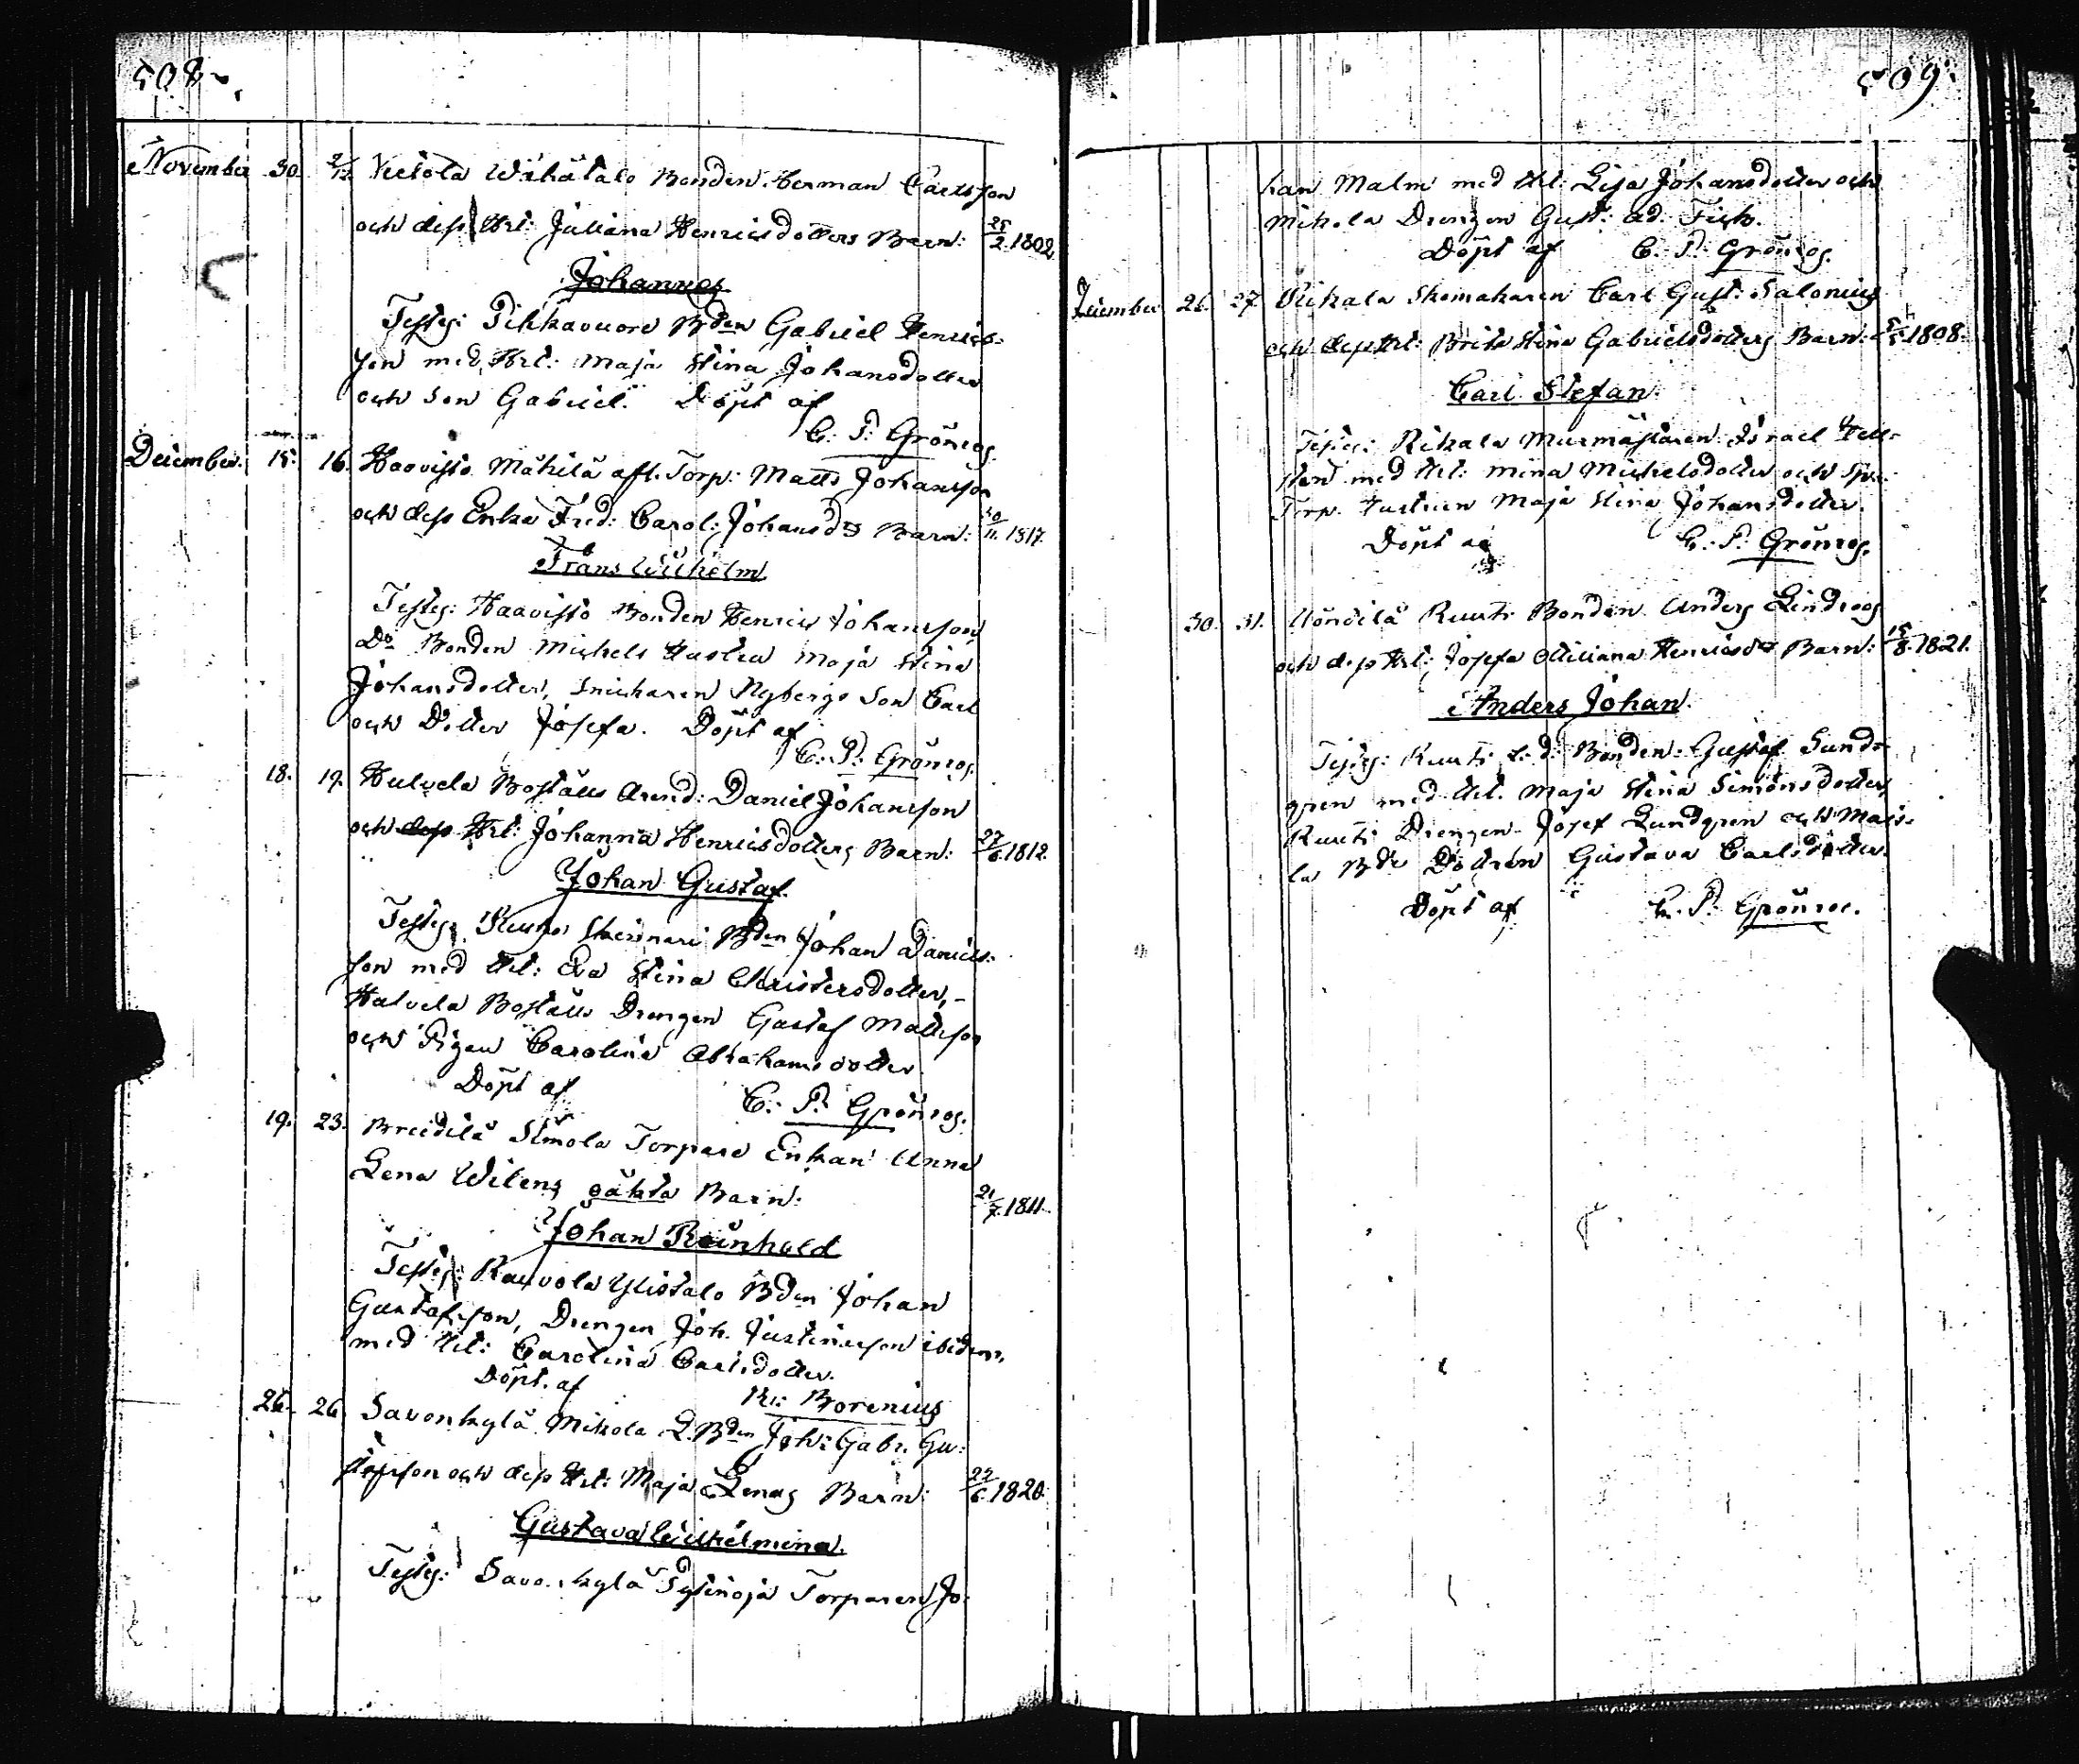 508.
November 30. 2/12. Vietola Wähätalo Bonden Herman Carlsson
och dess Hrl: Juliana Henricsdotters Barn: 25/2.1802.
Johannes
Testes: Pihkavuore Bden Gabriel Henrics-
son med Hrl: Maja Stina Johansdotter
och Son Gabriel. Döpt af
C. P. Grönroos.
December. 15. 16. Haavisto Mäkilä afl. Torp: Matts Johansson
och dess Enka Fred: Carol: Johansds Barn: 30/11.1817.
Frans Wilhelm
Testes: Haavisto Bonden Henric Johansson
Do Bonden Michels Hustru Maja Stina
Johansdotter, Snickaren Nybergs Son Carl
och Dotter Josefa. Döpt af
C. P. Grönroos.
18. 19. Hulvela Boställs Arend: Daniel Johansson
och dess Hrl: Johanna Henricsdotters Barn: 27/6.1812.
Johan Gustaf.
Testes: Skinnari Bden Johan Daniels-
son med Hrl: Eva Stina Christersdotter,
Hulvela Boställs Drengen Gustaf Mattsson
och Pigan Carolina Abrahamsdotter
Döpt af C. P. Grönroos.
19. 23. Breidilä Simola Torpare Enkan Anna
Lena Wilens oäkta Barn: 21/7.1811.
Johan Reinhold
Testes: Rauvola Ylistalo Bden Johan
Gustafsson, Drengen Joh. Justinusson ibidem,
med Hrl: Carolina Carlsdotter.
Döpt. af Borenius
26. 26. Savonkylä Mikola L.Bden Joh: Gabr. Gu-
stafsson och dess Hrl: Maja Lenas Barn: 22/6.1820.
Gustava Wilhelmina.
Testes: Savonkylä Torparen Jo-
509.
han Malm med Hrl: Lisa Johansdotter och
Mikola Drengen Gust: Ad: Fisk.
Döpt af C. P. Grönroos.
December 26. 27. Rikala Skomakaren Carl Gust: Salonius
och dess Hrl: Brita Stina Gabrielsdotters Barn: 5/5.1808.
Carl Stefan.
Testes: Rikala Murmästaren Israel Hell-
sten med Hrl: Mina Michelsdotter och
Torp. Hustrun Maja Stina Johansdotter.
Döpt af C. P. Grönroos.
30. 31. Ruuti Bonden Anders Lindroos
och dess Hrl: Josefa Miliana Henricsds Barn: 15/8.1821.
Anders Johan.
Testes: Ruuti Bonden Gustaf Sund-
gren med Hrl. Maja Stina Simonsdotter,
Ruuti Drengen Josef Lundgren och Mais-
la Bde Dottren Gustava Carlsdotter.
Döpt af C. P. Grönroos.